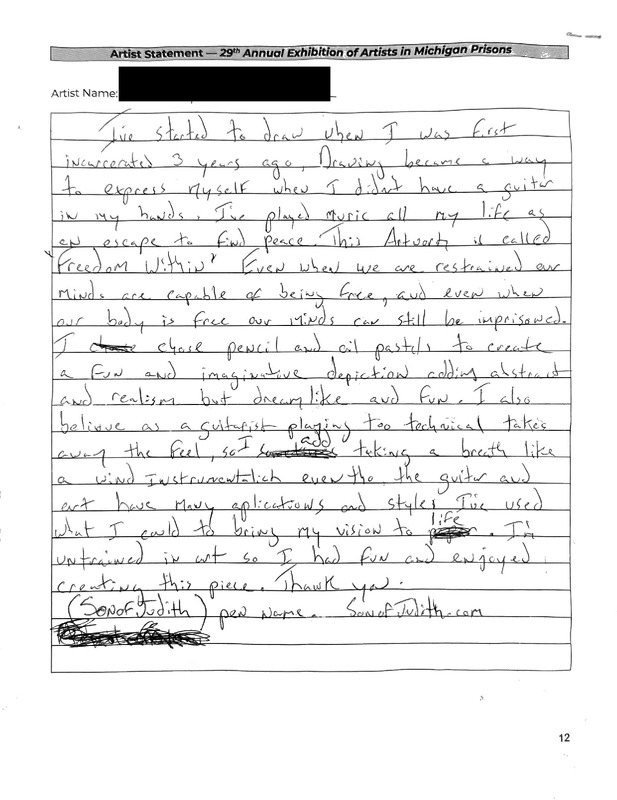 Artist Statement — 29th Annual Exhibition of Artists in Michigan Prisons
Artist Name:
I've started to draw when I was first
incarcerated 3 years ago, Drawing became a way
to express myself when I didn't have a guitar
in my hands. I've played music all my life as
an escape to find peace. This Artwork is called
"Freedom Within" Even when we are restrained our
minds are capable of being free, and even when
our body is free our minds can still be imprisoned.
I chose pencil and oil pastels to create
a fun and imaginative depiction adding abstract
and realism but dreamlike and fun. I also
believe as a guitarist playing too technical takes
away the feel, so I add taking a breath like
a wind instrumentalich even tho, the guitar and
art have many applications and styles I've used
what I could to bring my vision to life. I'm
untrained in art so I had fun and enjoyed
creating this piece. Thank you.
(SonofJudith) pen name. SonofJudith.com
12